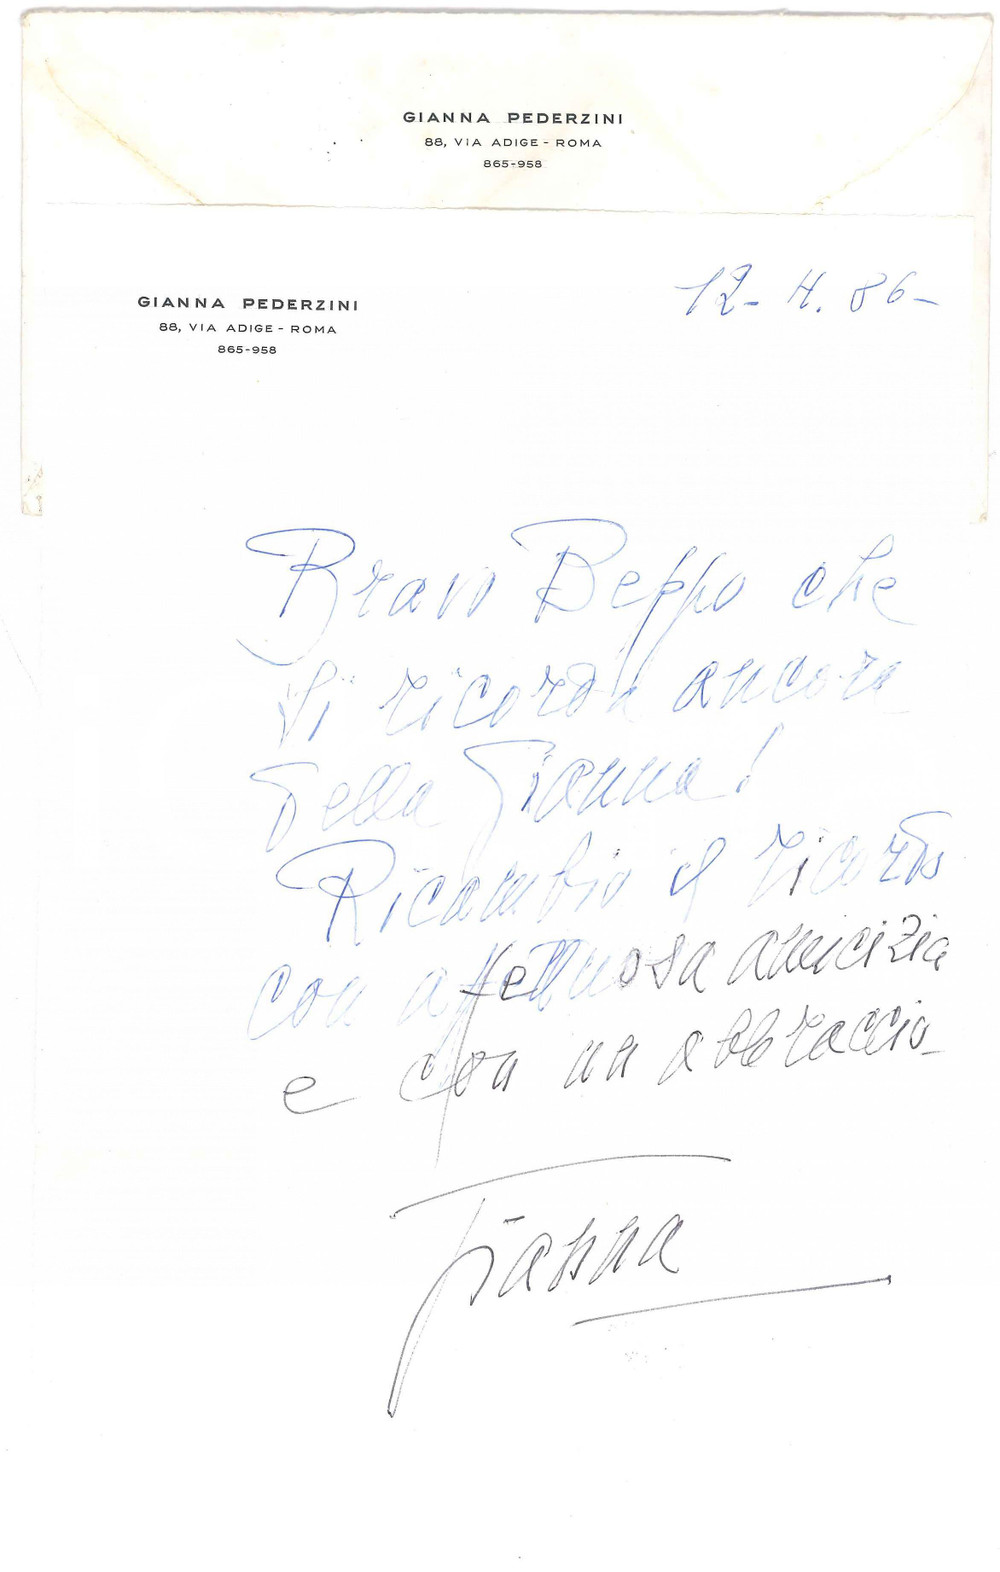 GIANNA PEDERZINI
88, VIA ADIGE - ROMA
865-958
GIANNA PEDERZINI
88, VIA ADIGE - ROMA
865-958
12- 4. 86-
Bravo Beppo che
si ricorda ancora
della Gianna!
Ricambio il ricordo
con affettuosa amicizia
e con un abbraccio-
Gianna